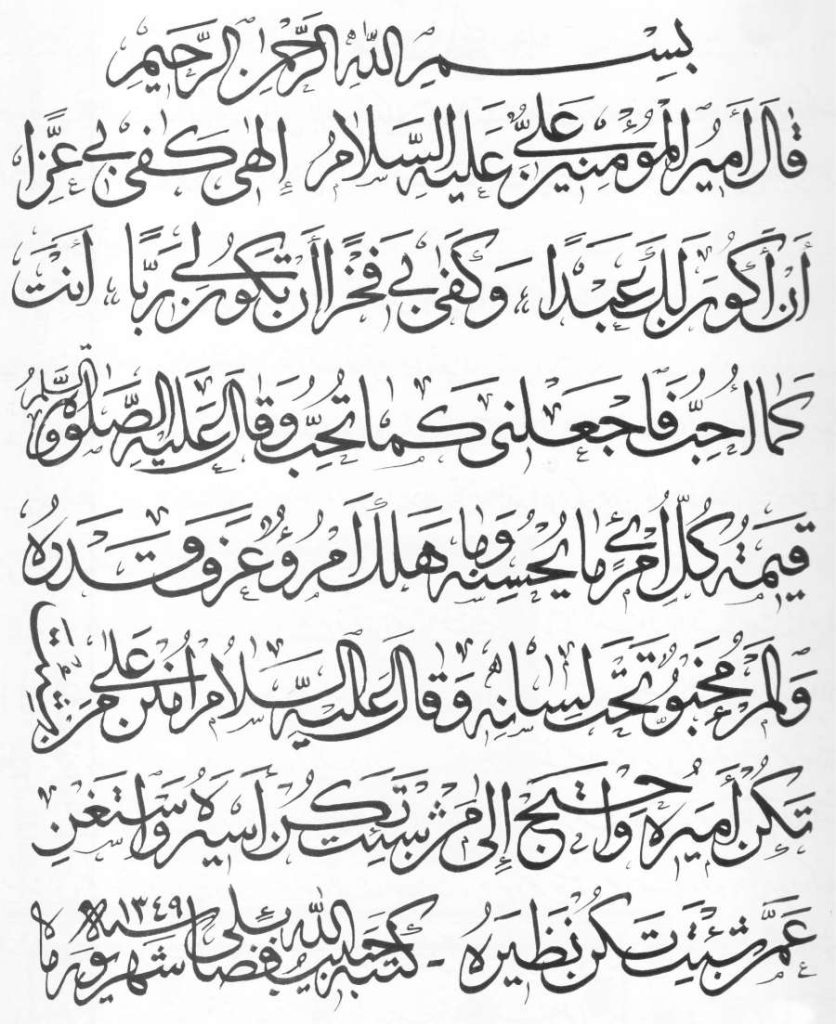 بِسْمِ اللهِ الرَّحْمٰنِ الرَّحِيمِ
قَالَ أَمِيرُ الْمُؤْمِنِينَ عَلِيٌّ عَلَيْهِ السَّلَامُ إِلٰهِي كَفٰى بِي عِزًّا
أَنْ أَكُونَ لَكَ عَبْدًا، وَكَفٰى بِي فَخْرًا أَنْ تَكُونَ لِي رَبًّا، أَنْتَ
كَمَا أُحِبُّ فَاجْعَلْنِي كَمَا تُحِبُّ وَقَالَ عَلَيْهِ الصَّلٰوةُ وَالسَّلَامُ
قِيمَةُ كُلِّ امْرِئٍ مَا يُحْسِنُهُ وَمَا هَلَكَ امْرُؤٌ عَرَفَ قَدْرَهُ
وَالْمَرْءُ مَخْبُوٌّ تَحْتَ لِسَانِهِ وَقَالَ عَلَيْهِ السَّلَامُ امْنُنْ عَلٰى مَنْ شِئْتَ
تَكُنْ أَمِيرَهُ وَاحْتَجْ إِلٰى مَنْ شِئْتَ تَكُنْ أَسِيرَهُ وَاسْتَغْنِ
عَمَّنْ شِئْتَ تَكُنْ نَظِيرَهُ - كتبه حبيب الله فضائلى شهريور ماه سنة ١٣٤٩